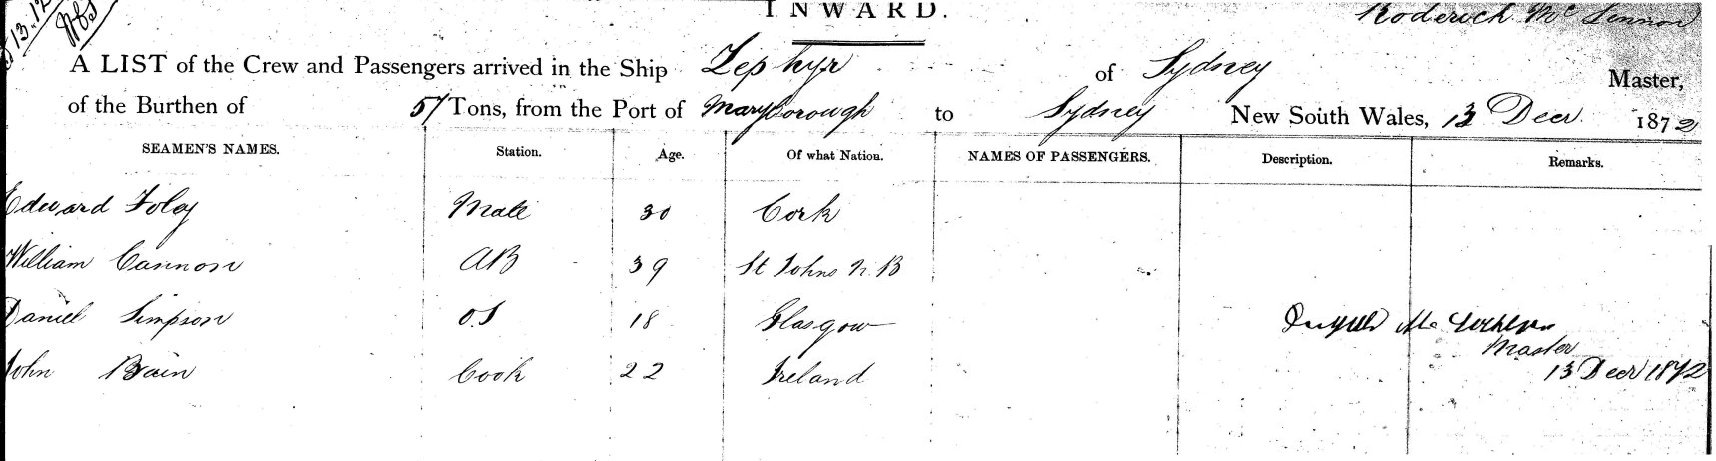 13.12
INWARD.
Roderick Mc Lennon
A LIST of the Crew and Passengers arrived in the Ship Zephyr of Sydney Master,
of the Burthen of 51 Tons, from the Port of Maryborough to Sydney New South Wales, 13 Decr 1872
SEAMEN'S NAMES. Station. Age. Of what Nation. NAMES OF PASSENGERS. Description. Remarks.
Edward Foley Mate 30 Cork
William Cannon AB 39 St Johns N. B
Daniel Simpson O.S 18 Glasgow
John Bain Cook 22 Ireland
Mc
Master
13 Decr 1872